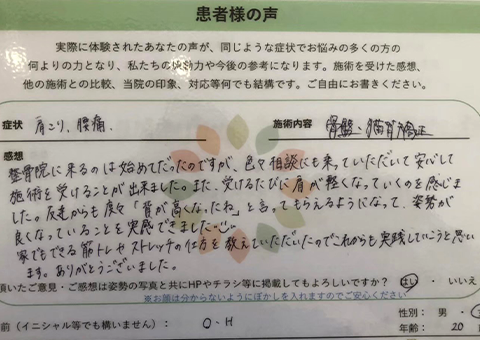 患者様の声
実際に体験されたあなたの声が、同じような症状でお悩みの多くの方の
何よりの力となり、私たちの原動力や今後の参考になります。施術を受けた感想、
他の施術との比較、当院の印象、対応等何でも結構です。ご自由にお書きください。
症状 肩こり、腰痛、 施術内容 骨盤、猫背矯正
感想
整骨院に来るのは始めてだったのですが、色々相談にも来っていただいて安心して
施術を受けることが出来ました。また、受けるたびに肩が軽くなっていくのを感じま
した。友達からも度々「背が高くなったね」と言ってもらえるようになって、姿勢が
良くなっていることを実感できました。
家でもできる筋トレやストレッチの仕方を教えていただいたのでこれからも実践していこうと思い
ます。ありがとうございました。
頂いたご意見・ご感想は姿勢の写真と共にHPやチラシ等に掲載してもよろしいですか? はい ・ いいえ
※お顔は分からないようにぼかしを入れますのでご安心ください
前(イニシャル等でも構いません): O・H
性別: 男・
年齢: 20